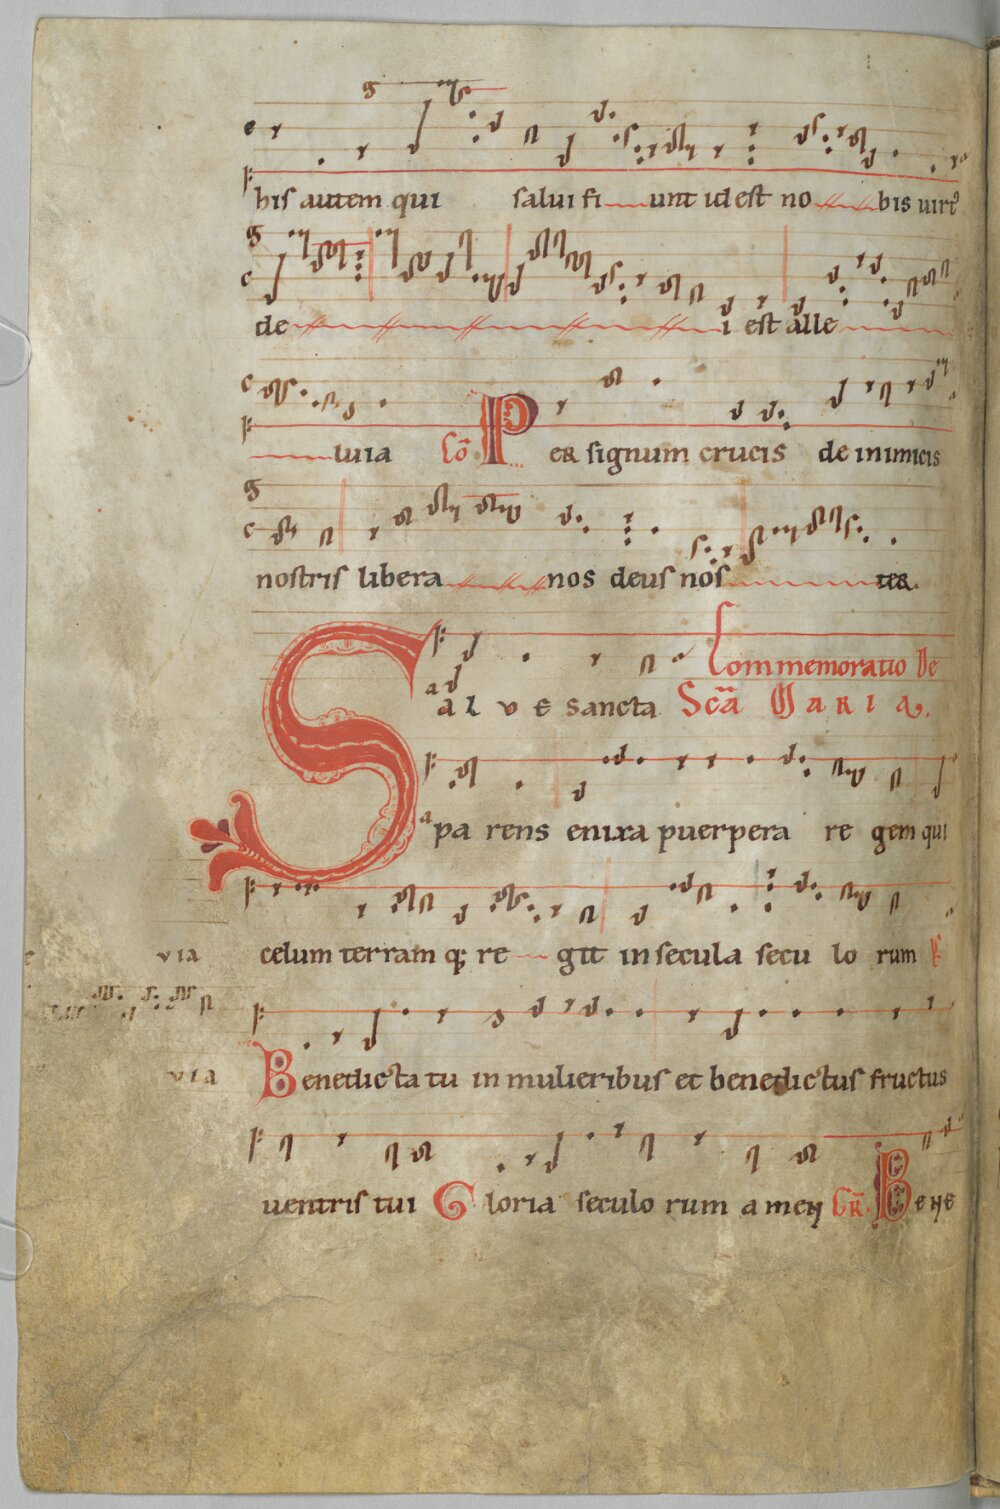 bis autem qui salui fi unt id est no bis uirt᷒
de i est alle
luia Cō Per signum crucis de inimicis
nostris libera nos deus nos ter.
Commemoratio De
Salve sancta Scā Maria.
parens enixa puerpera regem qui
celum terram q; re git in secula seculorum
via
Benedicta tu in mulieribus et benedictus fructus
via
uentris tui Gloria seculorum amen GR Bene